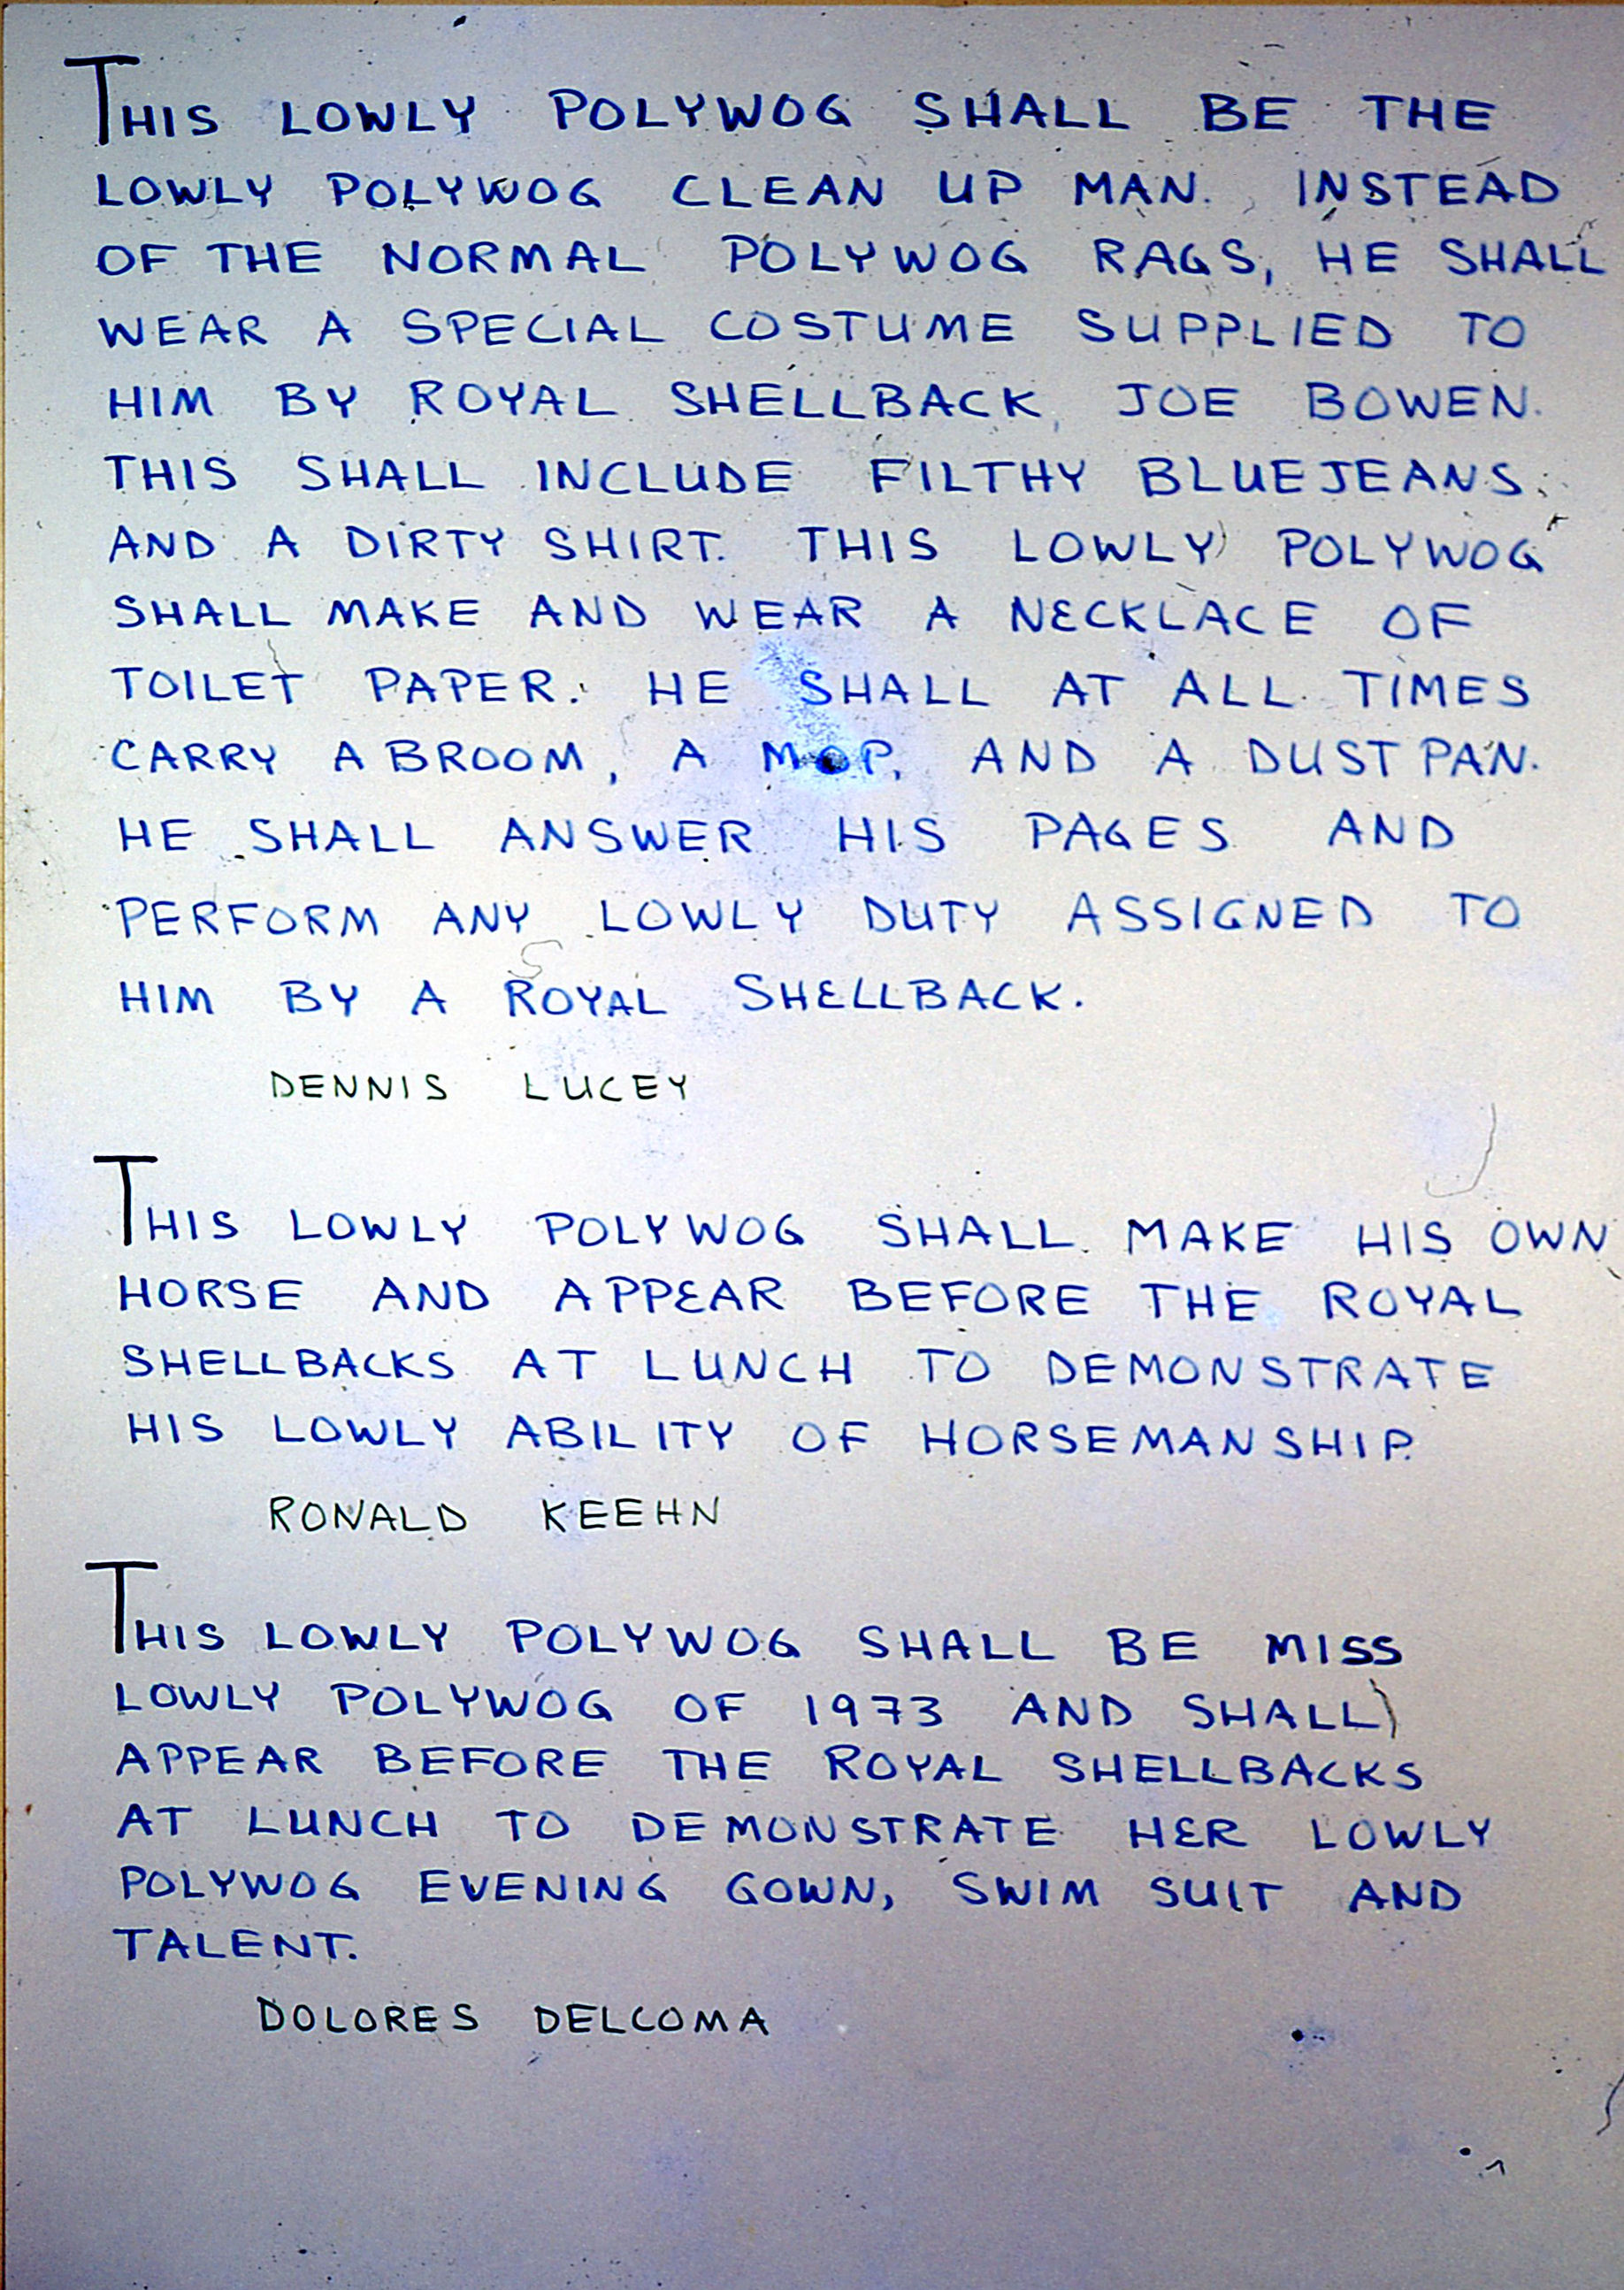 THIS LOWLY POLYWOG SHALL BE THE
LOWLY POLYWOG CLEAN UP MAN. INSTEAD
OF THE NORMAL POLYWOG RAGS, HE SHALL
WEAR A SPECIAL COSTUME SUPPLIED TO
HIM BY ROYAL SHELLBACK, JOE BOWEN.
THIS SHALL INCLUDE FILTHY BLUEJEANS
AND A DIRTY SHIRT. THIS LOWLY POLYWOG
SHALL MAKE AND WEAR A NECKLACE OF
TOILET PAPER. HE SHALL AT ALL TIMES
CARRY A BROOM, A MOP, AND A DUST PAN.
HE SHALL ANSWER HIS PAGES AND
PERFORM ANY LOWLY DUTY ASSIGNED TO
HIM BY A ROYAL SHELLBACK.
DENNIS LUCEY
THIS LOWLY POLYWOG SHALL MAKE HIS OWN
HORSE AND APPEAR BEFORE THE ROYAL
SHELLBACKS AT LUNCH TO DEMONSTRATE
HIS LOWLY ABILITY OF HORSEMANSHIP.
RONALD KEEHN
THIS LOWLY POLYWOG SHALL BE MISS
LOWLY POLYWOG OF 1973 AND SHALL
APPEAR BEFORE THE ROYAL SHELLBACKS
AT LUNCH TO DEMONSTRATE HER LOWLY
POLYWOG EVENING GOWN, SWIM SUIT AND
TALENT.
DOLORES DELCOMA